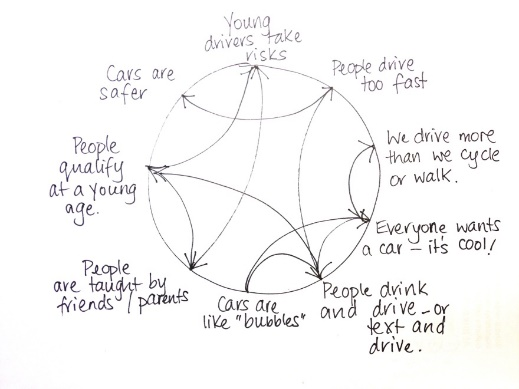 Young
drivers take
risks
People drive
too fast
We drive more
than we cycle
or walk.
Everyone wants
a car - it's cool!
People drink
and drive - or
text and
drive.
Cars are
like "bubbles"
People
are taught by
friends / parents
People
qualify
at a young
age.
Cars are
safer